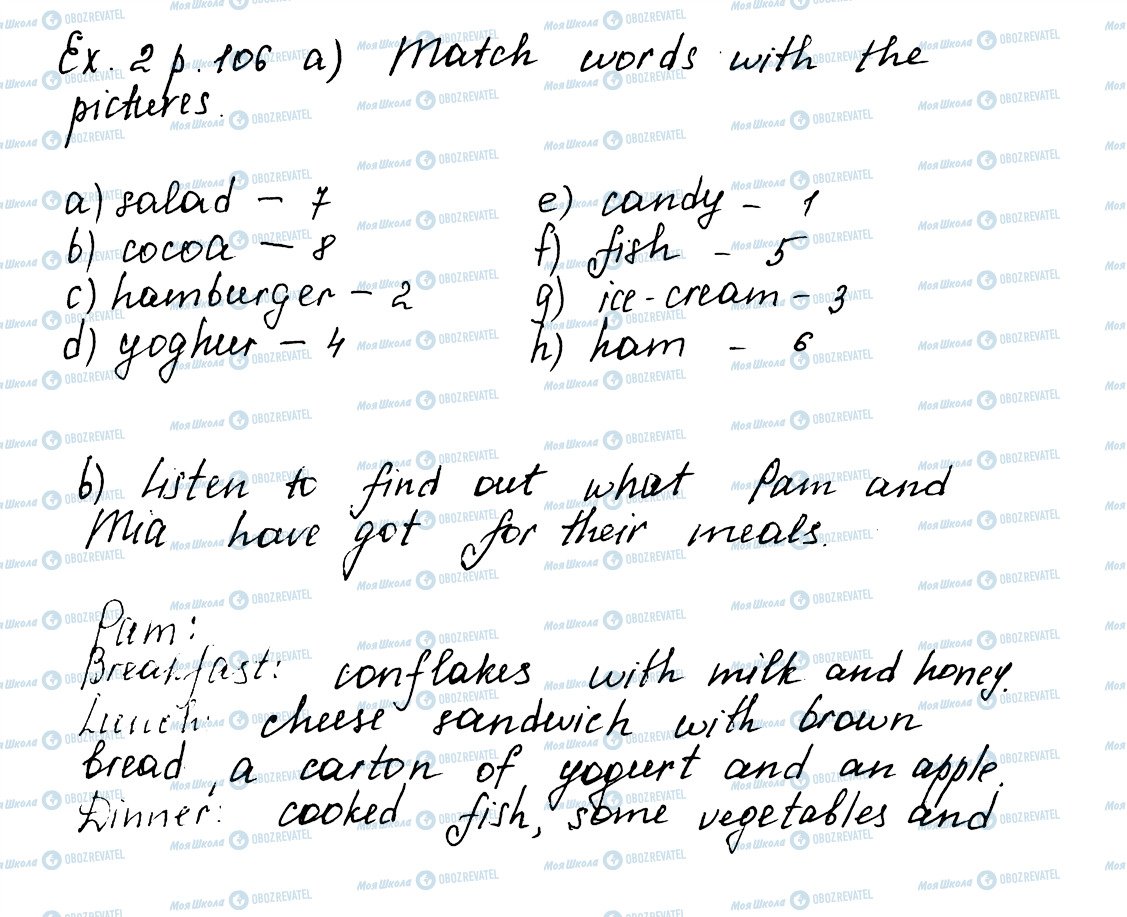 Ex. 2 p. 106 a) Match words with the
pictures.
a) salad – 7
b) cocoa – 8
c) hamburger – 2
d) yoghur – 4
e) candy – 1
f) fish – 5
g) ice-cream – 3
h) ham – 6
b) Listen to find out what Pam and
Mia have got for their meals.
Pam:
Breakfast: conflakes with milk and honey.
Lunch: cheese sandwich with brown
bread, a carton of yogurt and an apple.
Dinner: cooked fish, some vegetables and